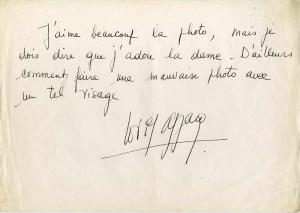 J'aime beaucoup la photo, mais je
dois dire que j'adore la dame. D'ailleurs
comment faire une mauvaise photo avec
un tel visage